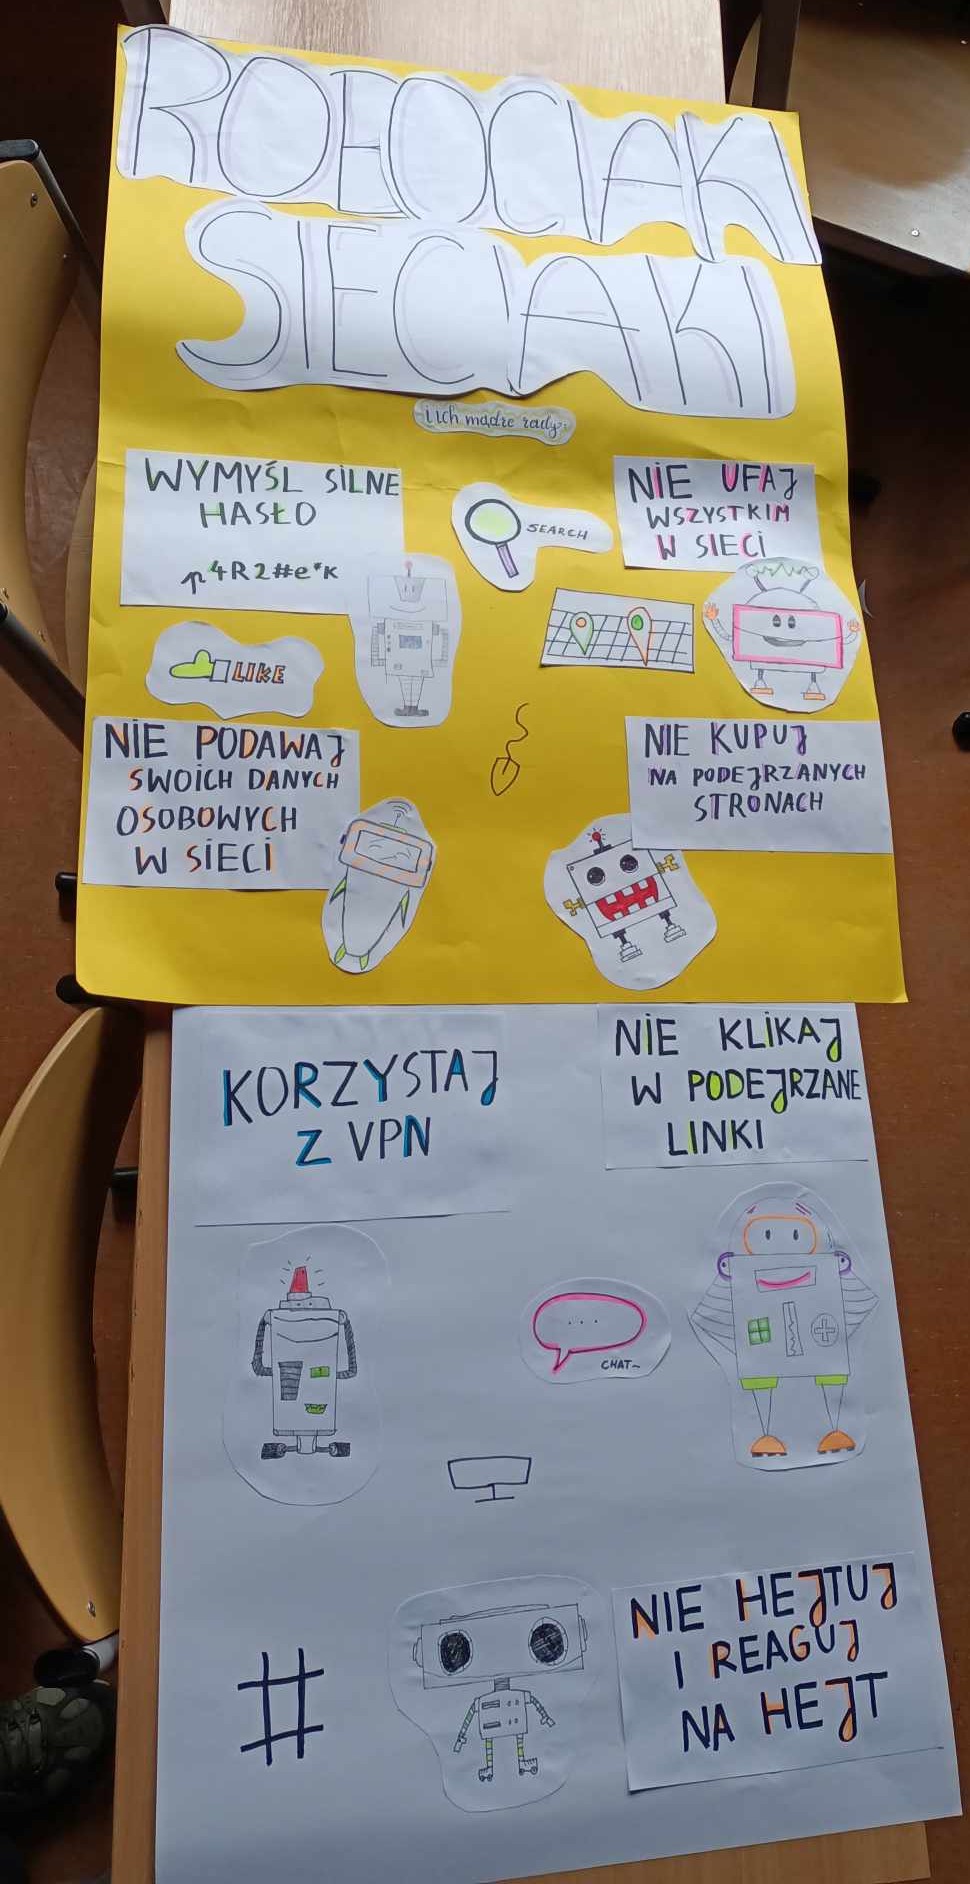 ROBOCIAKI
SIECIAKI
i ich mądre rady:
WYMYŚL SILNE
HASŁO
p4R2#e*K
SEARCH
NIE UFAJ
WSZYSTKIM
W SIECI
LIKE
NIE PODAWAJ
SWOICH DANYCH
OSOBOWYCH
W SIECI
NIE KUPUJ
NA PODEJRZANYCH
STRONACH
KORZYSTAJ
Z VPN
NIE KLIKAJ
W PODEJRZANE
LINKI
...
CHAT~
#
NIE HEJTUJ
I REAGUJ
NA HEJT